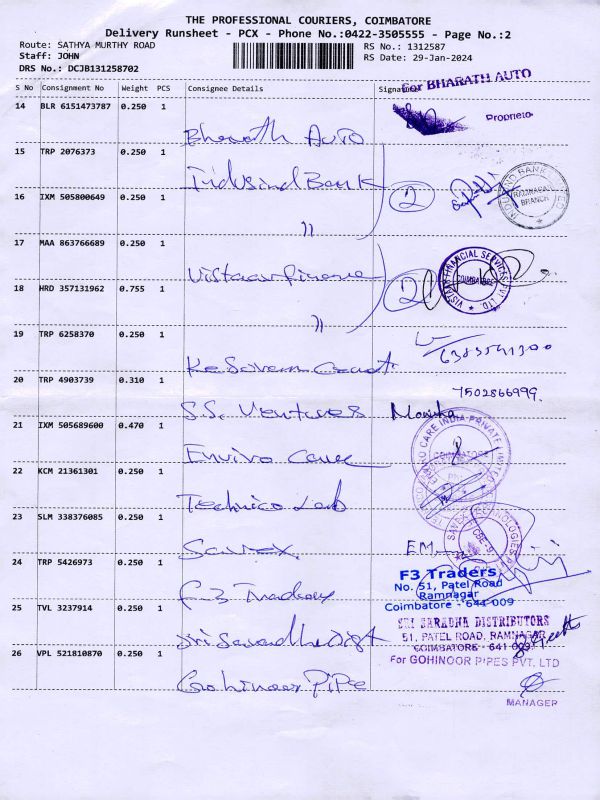 THE PROFESSIONAL COURIERS, COIMBATORE
Delivery Runsheet - PCX - Phone No.:0422-3505555 - Page No.:2
Route: SATHYA MURTHY ROAD
RS No.: 1312587
Staff: JOHN
RS Date: 29-Jan-2024
DRS No.: DCJB131258702
S No Consignment No Weight PCS Consignee Details Signature
For BHARATH AUTO
14 BLR 6151473787 0.250 1
Proprieto
Bharath Auto
15 TRP 2076373 0.250 1
IndusindBank 2
INDUSIND BANK LTD
RAMNAGAR
BRANCH
16 IXM 505800649 0.250 1
"
17 MAA 863766689 0.250 1
Vistaar finance 2
VISTAAR FINANCIAL SERVICES PVT LTD.
COIMBATORE
18 HRD 357131962 0.755 1
"
19 TRP 6258370 0.250 1
20 TRP 4903739 0.310 1
7502866999.
S.S. Ventures
21 IXM 505689600 0.470 1
ENVIRO CARE INDIA PRIVATE LIMITED
COIMBATORE
Enviro Care
22 KCM 21361301 0.250 1
Technico Lab
23 SLM 338376085 0.250 1
SAVEX TECHNOLOGIES P
CBE-9
Savex
EM
24 TRP 5426973 0.250 1
F3 Traders
No. 51, Patel Road
Ramnagar
Coimbatore - 641 009
F3 Traders
25 TVL 3237914 0.250 1
SRI SARADHA DISTRIBUTORS
51, PATEL ROAD, RAMNAGAR
COIMBATORE - 641 009.
Sri Saradha Dist
26 VPL 521810870 0.250 1
For GOHINOOR PIPES PVT. LTD
Gohinoor Pipe
MANAGER